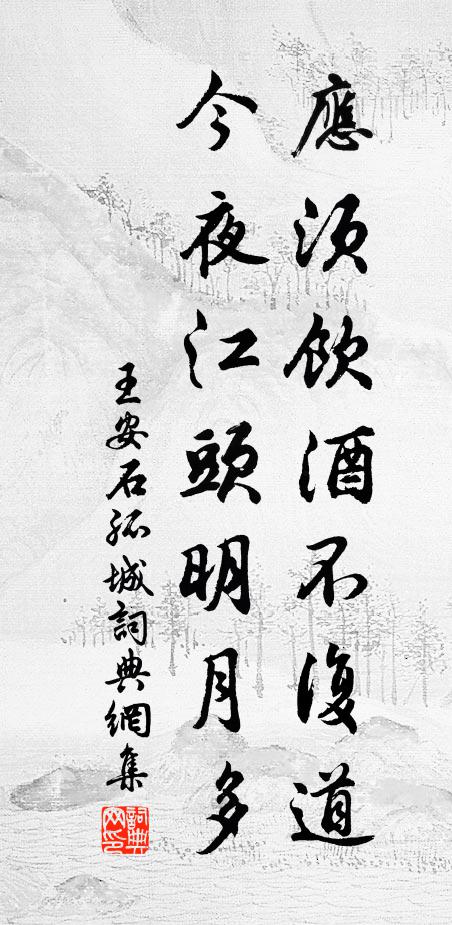 應須飲酒不復道
今夜江頭明月多
王安石孤城詞典網集
詞典网印